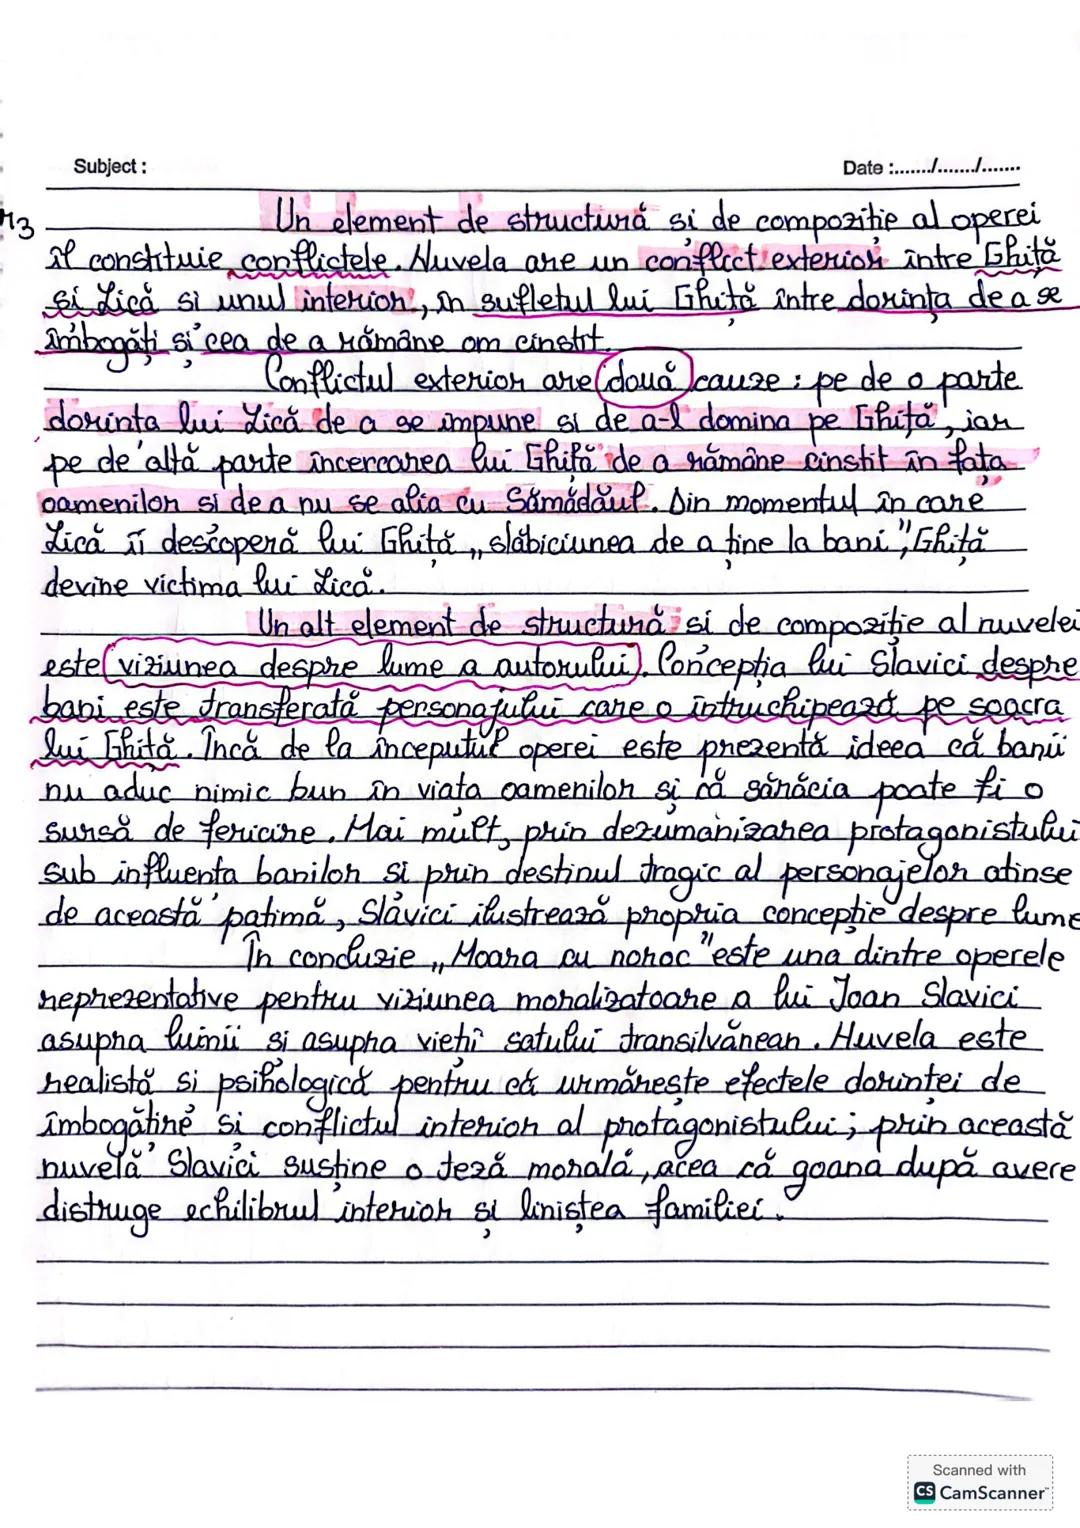 Subject :
Date :......./......./.......
M3
Un element de structură și de compoziție al operei
îl constituie conflictele. Nuvela are un conflict exterior între Ghiță
și Lică și unul interior, în sufletul lui Ghiță între dorința de a se
îmbogăți și cea de a rămâne om cinstit.
Conflictul exterior are două cauze : pe de o parte
dorința lui Lică de a se impune și de a-l domina pe Ghiță, iar
pe de altă parte încercarea lui Ghiță de a rămâne cinstit în fața
oamenilor și de a nu se alia cu Sămădăul. Din momentul în care
Lică îi descoperă lui Ghiță „slăbiciunea de a ține la bani”, Ghiță
devine victima lui Lică.
Un alt element de structură și de compoziție al nuvelei
este viziunea despre lume a autorului. Concepția lui Slavici despre
bani este transferată personajului care o întruchipează pe soacra
lui Ghiță. Încă de la începutul operei este prezentă ideea că banii
nu aduc nimic bun în viața oamenilor și că sărăcia poate fi o
sursă de fericire. Mai mult, prin dezumanizarea protagonistului
sub influența banilor și prin destinul tragic al personajelor atinse
de această patimă, Slavici ilustrează propria concepție despre lume
În concluzie „Moara cu noroc” este una dintre operele
reprezentative pentru viziunea moralizatoare a lui Ioan Slavici
asupra lumii și asupra vieții satului transilvănean. Nuvela este
realistă și psihologică pentru că urmărește efectele dorinței de
îmbogățire și conflictul interior al protagonistului; prin această
nuvelă Slavici susține o teză morală, acea că goana după avere
distruge echilibrul interior și liniștea familiei.
Scanned with
CS CamScanner